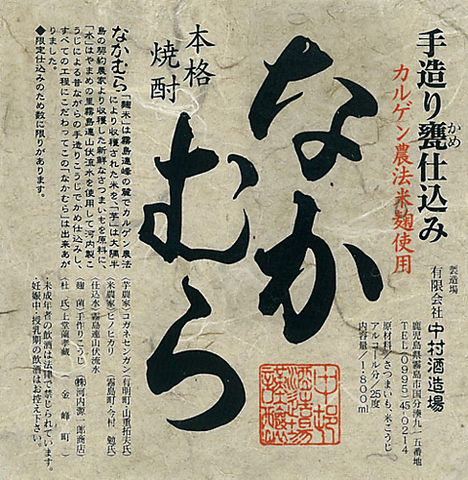 手造り甕仕込み
かめ
カルゲン農法米麹使用
製造場
有限会社 中村酒造場
鹿児島県霧島市国分湊九一五番地
TEL 0995-45-0214
原材料/さつまいも、米こうじ
アルコール分/25度
内容量/1,800ml
なか
むら
本格
焼酎
なかむら「麹米」は霧島連峰の麓でカルゲン農法
により収穫された米を、「芋」は大隅半
島の契約農家より収穫した新鮮なさつまいもを原料に、
「水」はやまめの里霧島連山伏流水を使用して河内製こ
うじによる昔ながらの手造りこうじでかめ仕込みし、
すべての工程にこだわってこの「なかむら」は出来あが
りました。
◆限定仕込みのため数に限りがあります。
(芋農家)コガネセンガン(有明町・山重拓夫氏)
(米農家)ヒノヒカリ(霧島町・今村 勉氏)
(仕込水)霧島連山伏流水
(麹菌)手作りこうじ(㈱河内源一郎商店)
(杜氏)上堂薗孝蔵(金峰町)
・未成年者の飲酒は法律で禁じられています。
・妊娠中・授乳期の飲酒はお控え下さい。